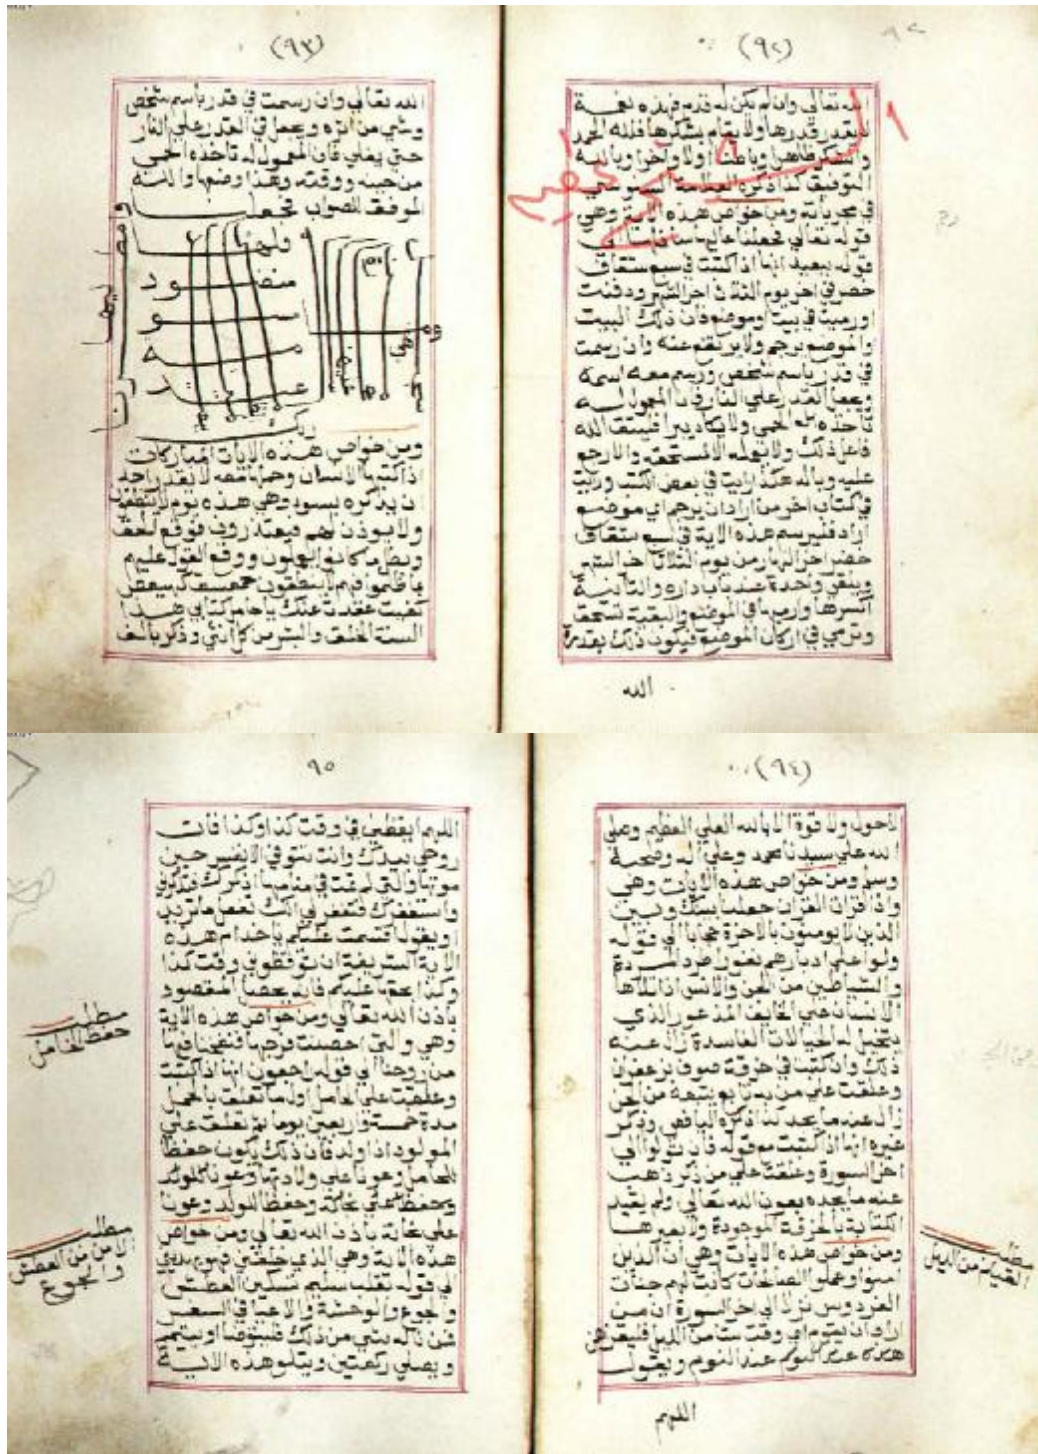 (٩٢)
الله تعالي وان لم يكن له قدم فهذه نعمة
لا يقدر قدرها ولا يقام بشكرها فلله الحمد
والشكر ظاهرا وباطنا اولا واخرا وبالله
التوفيق كذا ذكره العلامة السنوسي
في مجرباته ومن خواص هذه الاية وهي
قوله تعالي فجعلنا عاليها سافلها الي
قوله ببعيد انها اذا كتبت في سبع شقاف
خضر في اخر يوم الثلاث اخر الشهر ودفنت
او رميت في بيت او موضع فان ذلك البيت
والموضع يرجم ولا يرتفع عنه وان رسمت
في قدر باسم شخص ورسم معه اسمه
ويجعل القدر علي النار فان المعمول له
تأخذه الحمي ولا يكاد يبرا فليتق الله
فاعل ذلك ولا يعمله الا لمستحقه والا رجع
عليه وباله هكذا رايت في بعض الكتب ورايت
في كتاب اخر من اراد ان يرجم اي موضع
اراد فليرسم هذه الاية في سبع شقاف
خضر اخر النهار من يوم الثلاثا اخر الشهر
ويبقي واحدة عند باب داره والثانية
اكسرها وارميها في الموضع والبقية تسحق
وترمي في اركان الموضع فيكون ذلك بقدرة
الله
(٩٣)
الله تعالي وان رسمت في قدر باسم شخص
وشي من اثره ويجعل في القدر علي النار
حتي يغلي فان المعمول له تاخذه الحمي
من حينه ووقته وهذا وضعها والله
الموفق للصواب فجعلنا
منضود
مسو
مة
عند
ربك
ومن خواص هذه الايات المباركات
اذا كتبها الانسان وحملها معه لا يقدر احد
ان يذكره بسوء وهي هذه يوم لا ينطقون
ولا يوذن لهم فيعتذرون فوقع الحق
وبطل ما كانوا يعملون ووقع القول عليهم
بما ظلموا فهم لا ينطقون حمعسق كهيعص
كفيت عقدت عنك يا حامل كتابي هذا
السنة الخلق والبشر من كل انثي وذكر بالف
(٩٤)
لاحول ولا قوة الا بالله العلي العظيم وصلي
الله علي سيدنا محمد وعلي اله وصحبه
وسلم ومن خواص هذه الايات وهي
واذا قرات القران جعلنا بينك وبين
الذين لا يومنون بالاخرة حجابا الي قوله
ولوا علي ادبارهم نفورا طرد المردة
والشياطين من الجن والانس اذا تلاها
الانسان علي الخايف المذعور الذي
يتخيل له الخيالات الفاسدة زال عنه
ذلك وان كتبت في خرقة صوف بزعفران
وعلقت علي من به تابع يتبعه من الجن
زال عنه ما يجد كذا ذكره اليافعي وذكر
غيره انها اذا كتبت مع قوله فان تولوا الي
اخر السورة وعلقت علي من ذكر ذهب
عنه ما يجده بعون الله تعالي ولم يقيد
الكتابة بالخرقة الموجودة ولا بغيرها
ومن خواص هذه الايات وهي ان الذين
امنوا وعملوا الصالحات كانت لهم جنات
الفردوس نزلا الي اخر السورة ان من
اراد ان يقوم اي وقت شا من الليل فليقراهن
عند النوم ويقول
اللهم
مطلب
القيام من الليل
٩٥
اللهم ايقظني في وقت كذا وكذا فان
روحي بيدك وانت تتوفي الانفس حين
موتها والتي لم تمت في منامها اذكرك فتذكرني
واستغفرك فتغفر لي انك تفعل ما تريد
او يقول اقسمت عليكم ياخدام هذه
الاية الشريفة ان توقظوني وقت كذا
وكذا بحقها عليكم فانه يحصل المقصود
باذن الله تعالي ومن خواص هذه الاية
وهي والتي احصنت فرجها فنفخنا فيها
من روحنا الي قوله راجعون انها اذا كتبت
وعلقت علي الحامل اول ما تعلقت بالحمل
مدة خمسة واربعين يوما ثم تعلقت علي
المولود اذا ولد فان ذلك يكون حفظا
للحامل وعونا علي ولادتها وعونا للولد
وحفظا للولد وعونا
علي باذن الله تعالي ومن خواص
هذه الاية وهي الذي خلقني فهو يهدين
الي قوله بقلب سليم تسكين العطش
والجوع والوحشة والاعيا في السفر
فمن ناله شي من ذلك فليتوضا او يتيمم
ويصلي ركعتين ويتلو هذه الاية
مطلب
حفظ الحامل
مطلب
الامن من العطش
والجوع